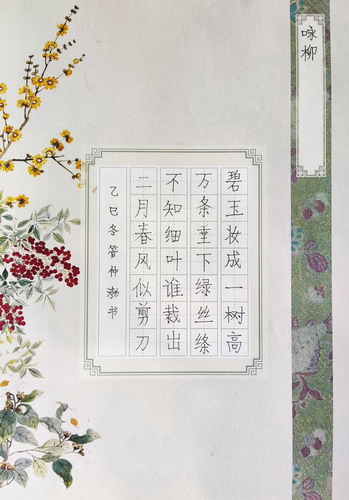 咏柳
碧玉妆成一树高
万条垂下绿丝绦
不知细叶谁裁出
二月春风似剪刀
乙巳冬管仲渤书